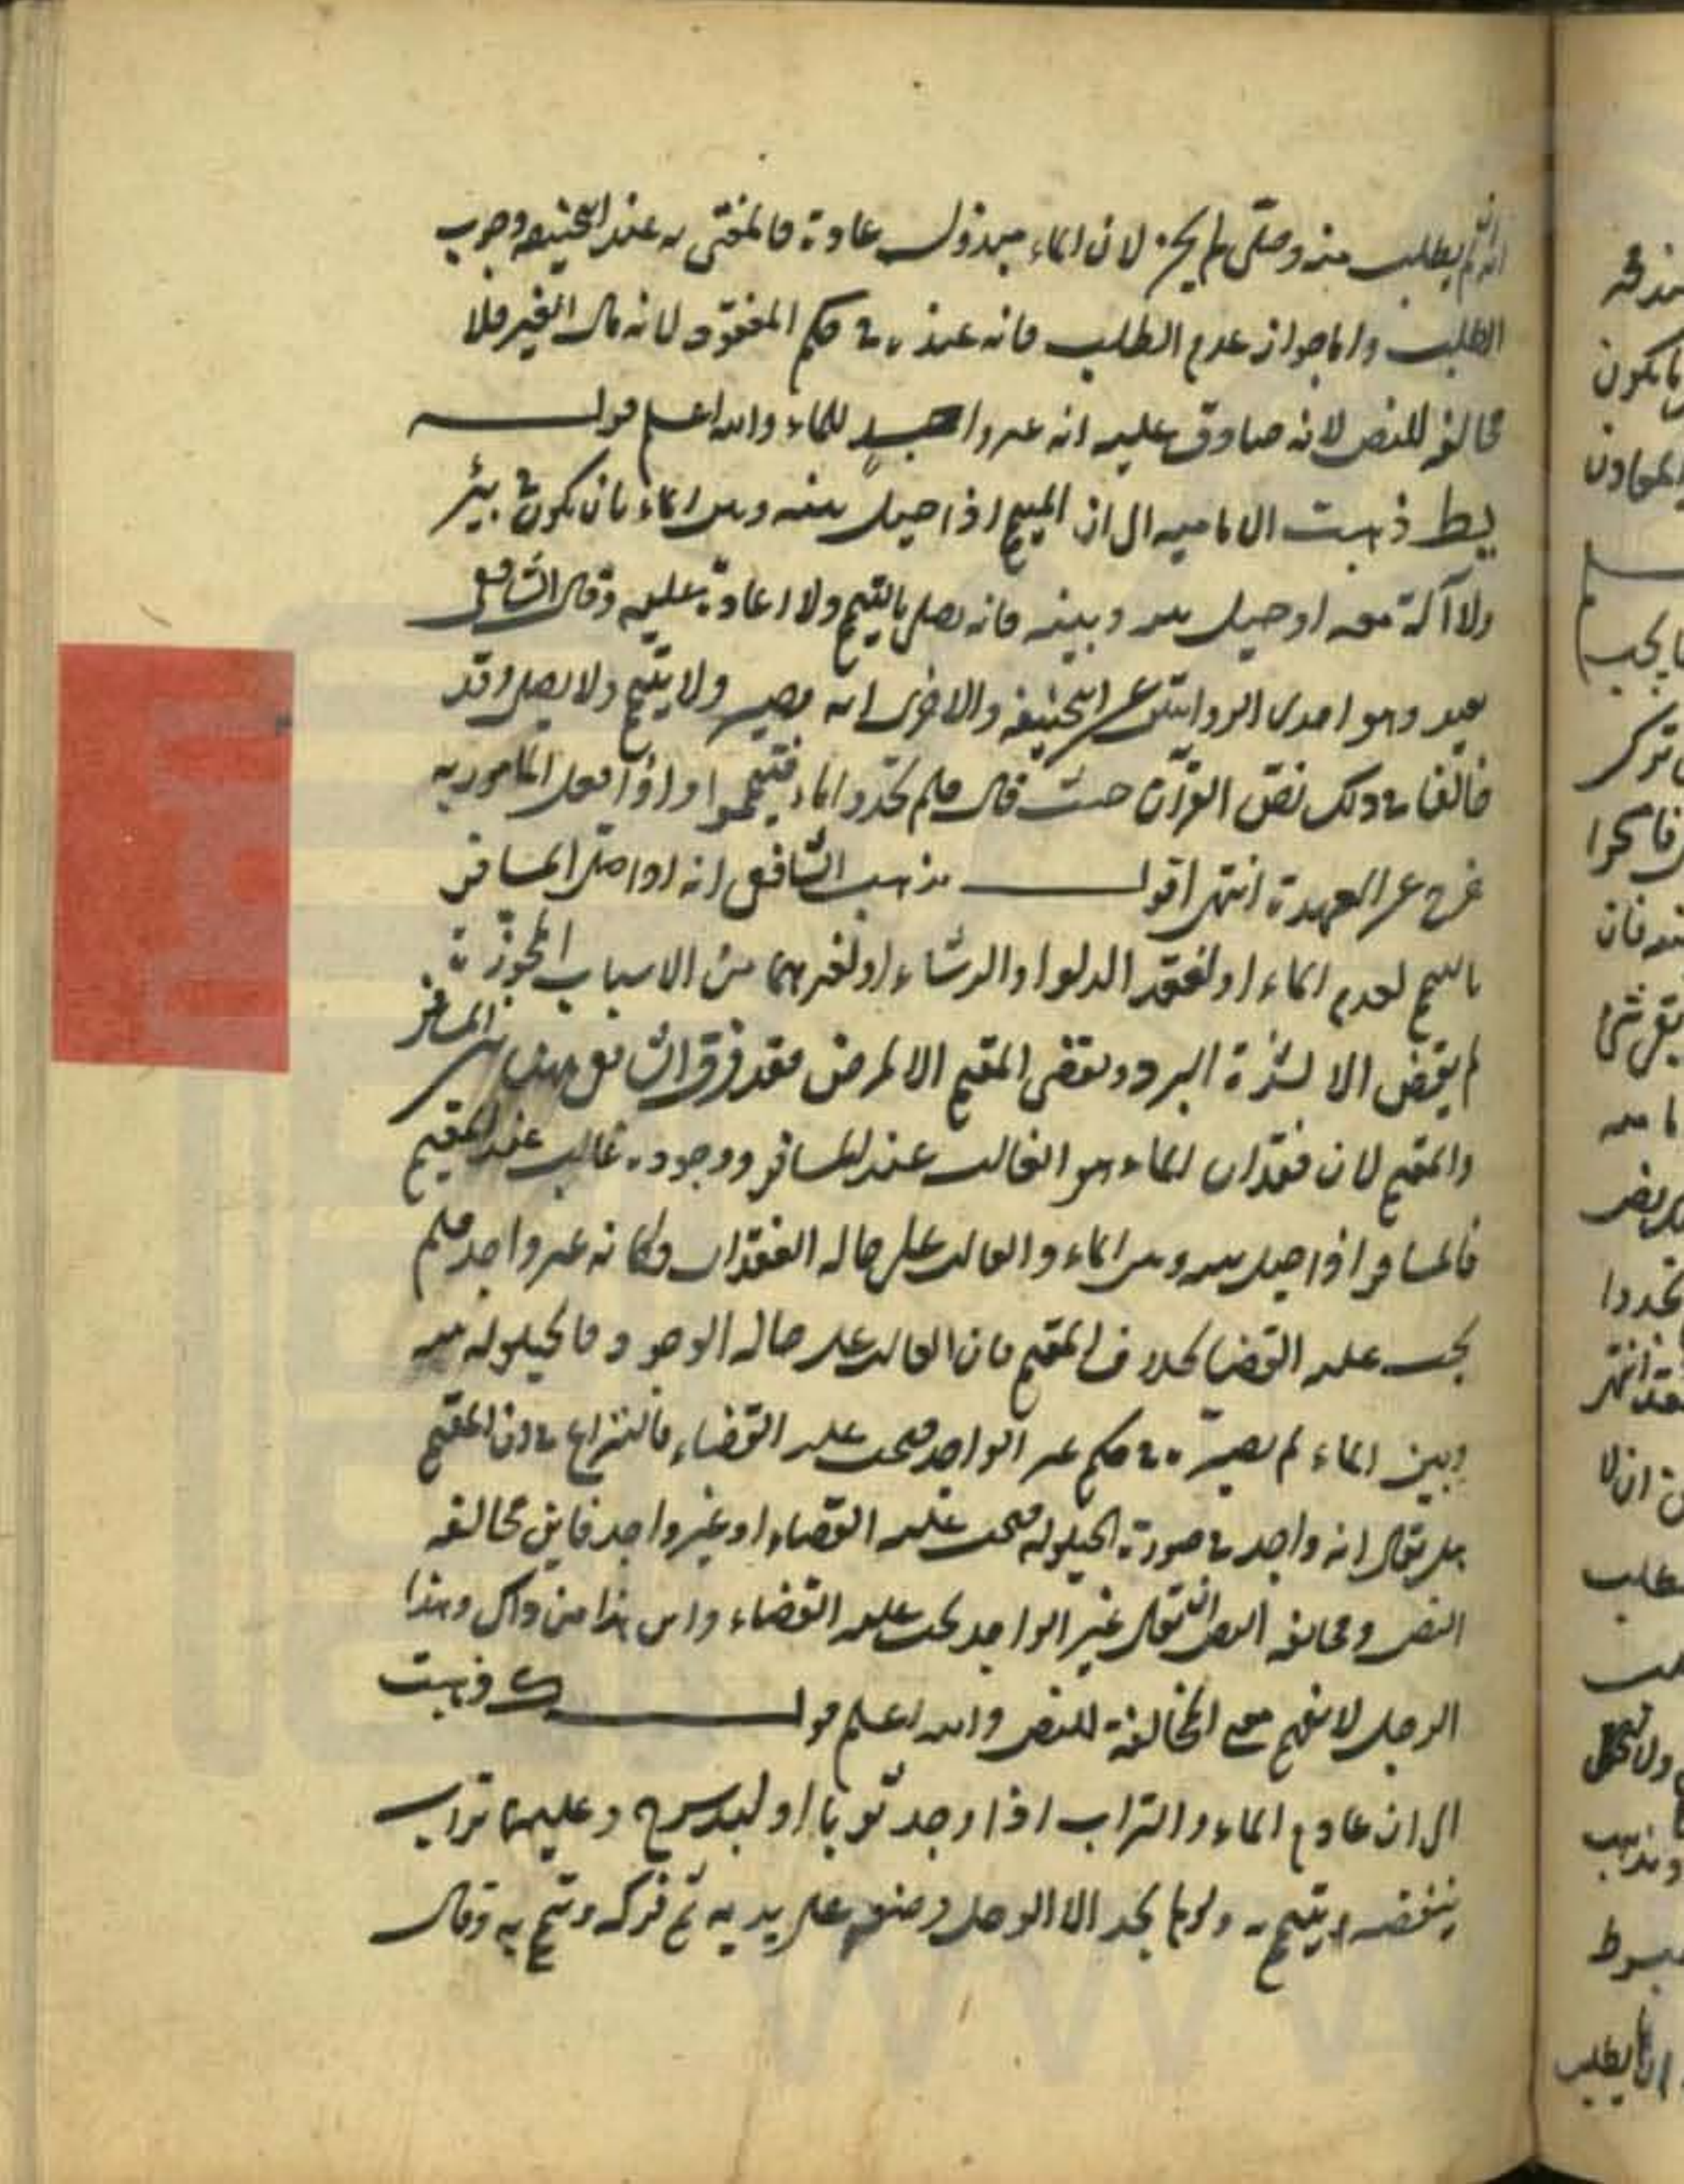 انه لم يطلب منه وصلى لم يجز لان الماء مبذول عادة فالمفتى به عند ابي حنيفة وجوب
الطلب واما جواز عدم الطلب فانه عنده في حكم المفقود لانه مال الغير فلا
مخالفة للنص لانه صادق عليه انه غير واجد للماء والله اعلم قوله
يط ذهبت الامامية الى ان المتيمم اذا حيل بينه وبين الماء بان يكون في بئر
ولا آلة معه او حيل بينه وبينه فانه يصلي بالتيمم ولا اعادة عليه وقال الشافعي
يعيد وهو احدى الروايتين عن ابي حنيفة والاخرى انه يصبر ولا يتيمم ولا يصلي وقد
خالفا في ذلك نص القرآن حيث قال فلم تجدوا الماء فتيمموا واذا فعل المامور به
خرج عن العهدة انتهى اقول مذهب الشافعي انه اذا صلى المسافر
بالتيمم لعدم الماء او لفقد الدلو او الرشاء او لغيرهما من الاسباب المجوزة
لم يقض الا لشدة البرد ويقضي المقيم الا لمرض فقد فرق الشافعي بين المسافر
والمقيم لان فقدان الماء هو الغالب عند المسافر ووجوده غالب عند المقيم
فالمسافر اذا حيل بينه وبين الماء والغالب على حاله الفقدان فكانه غير واجد فلم
يجب عليه القضا بخلاف المقيم فان الغالب على حاله الوجود فالحيلولة بينه
وبين الماء لم يصيره في حكم غير الواجد فيجب عليه القضاء فالنزاع في ان المقيم
هل يقال انه واجد في صورة الحيلولة فيجب عليه القضاء او غير واجد فاين مخالفة
النص ومخالفة النص ان يقال غير الواجد يجب عليه القضاء واين هذا من ذاك وهذا
الرجل لا يفهم معنى المخالفة للنص والله اعلم قوله ك ذهبت
الى ان عادم الماء والتراب اذا وجد ثوبا او لبد سرج وعليهما تراب
ينفضه ويتيمم به ولو لم يجد الا الوحل وضع على يديه ثم فركه وتيمم به وقال